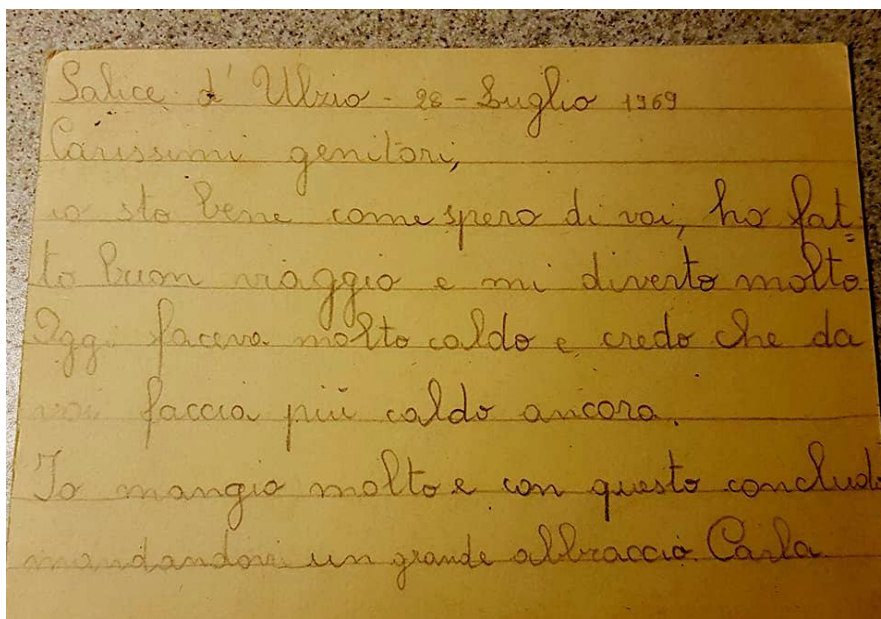 Salice d' Ulzio - 28 - Luglio 1969
Carissimi genitori,
io sto bene come spero di voi, ho fat=
to buon viaggio e mi diverto molto.
Oggi faceva molto caldo e credo che da
voi faccia più caldo ancora.
Io mangio molto e con questo concludo
mandandovi un grande abbraccio Carla